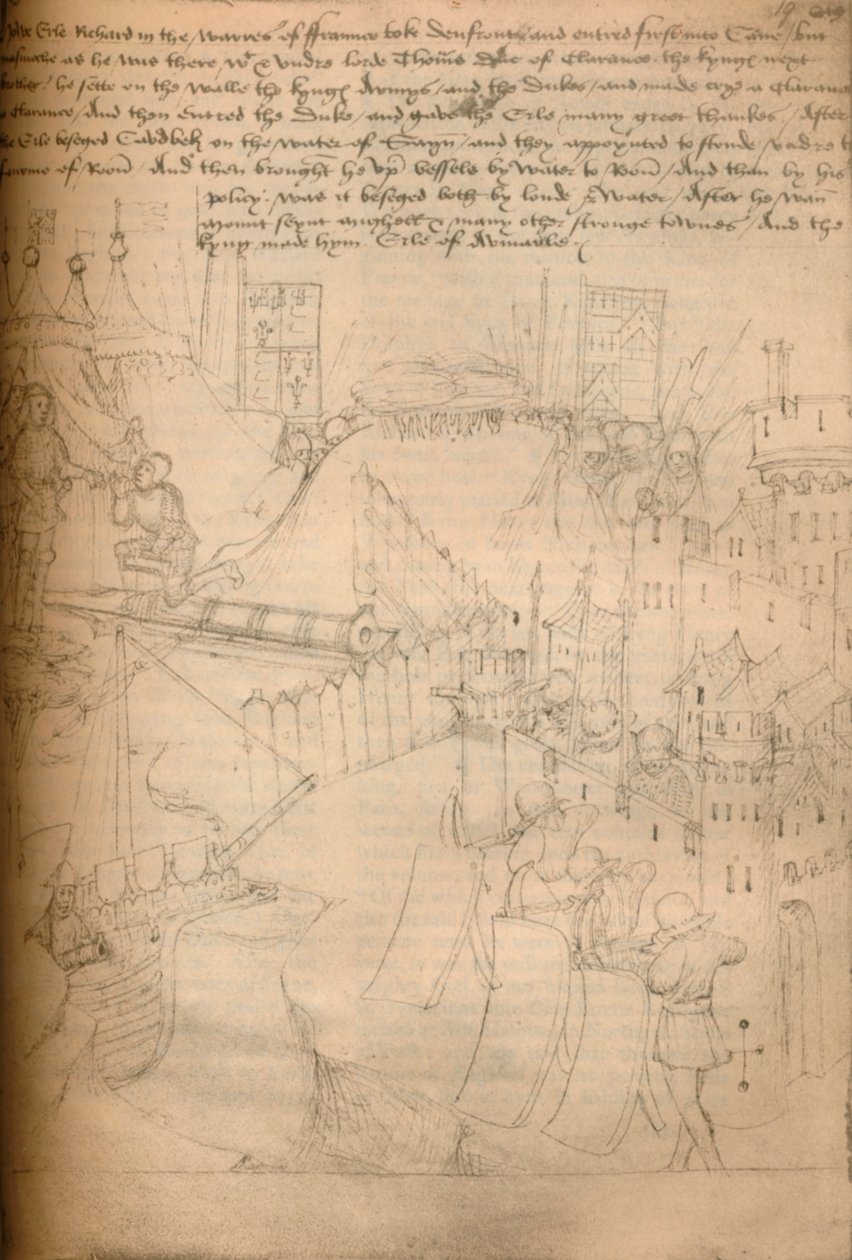 Erle Richard in the warres of ffraunce toke Denfront and entred first into Cane / but
as he was there wt & vndre lorde Thoms Duc of Clarance the kyngs next
brother he sette on the walle the kyngs Armys / and the Dukes / and made crye a Clarance
a Clarance / And then entred the Duke / and gave the Erle many greet thankes / After
the Erle beseged Cavdbek on the water of Sayn / and they appoynted to stonde vndre
of Roon / And then brought he vp vessels by water to Roon / And than by his
policy was it beseged both by londe & water / After he wan
mount seynt Mighell & many other stronge townes / And the
kyng made hym Erle of Avmarle
19